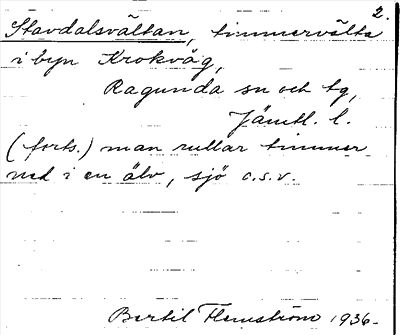 2.
Stavdalsvältan, timmervälta
i byn Krokvåg,
Ragunda sn och tg,
Jämtl. l.
(forts.) man rullar timmer
ned i en älv, sjö o.s.v.
Bertil Flemström 1936.